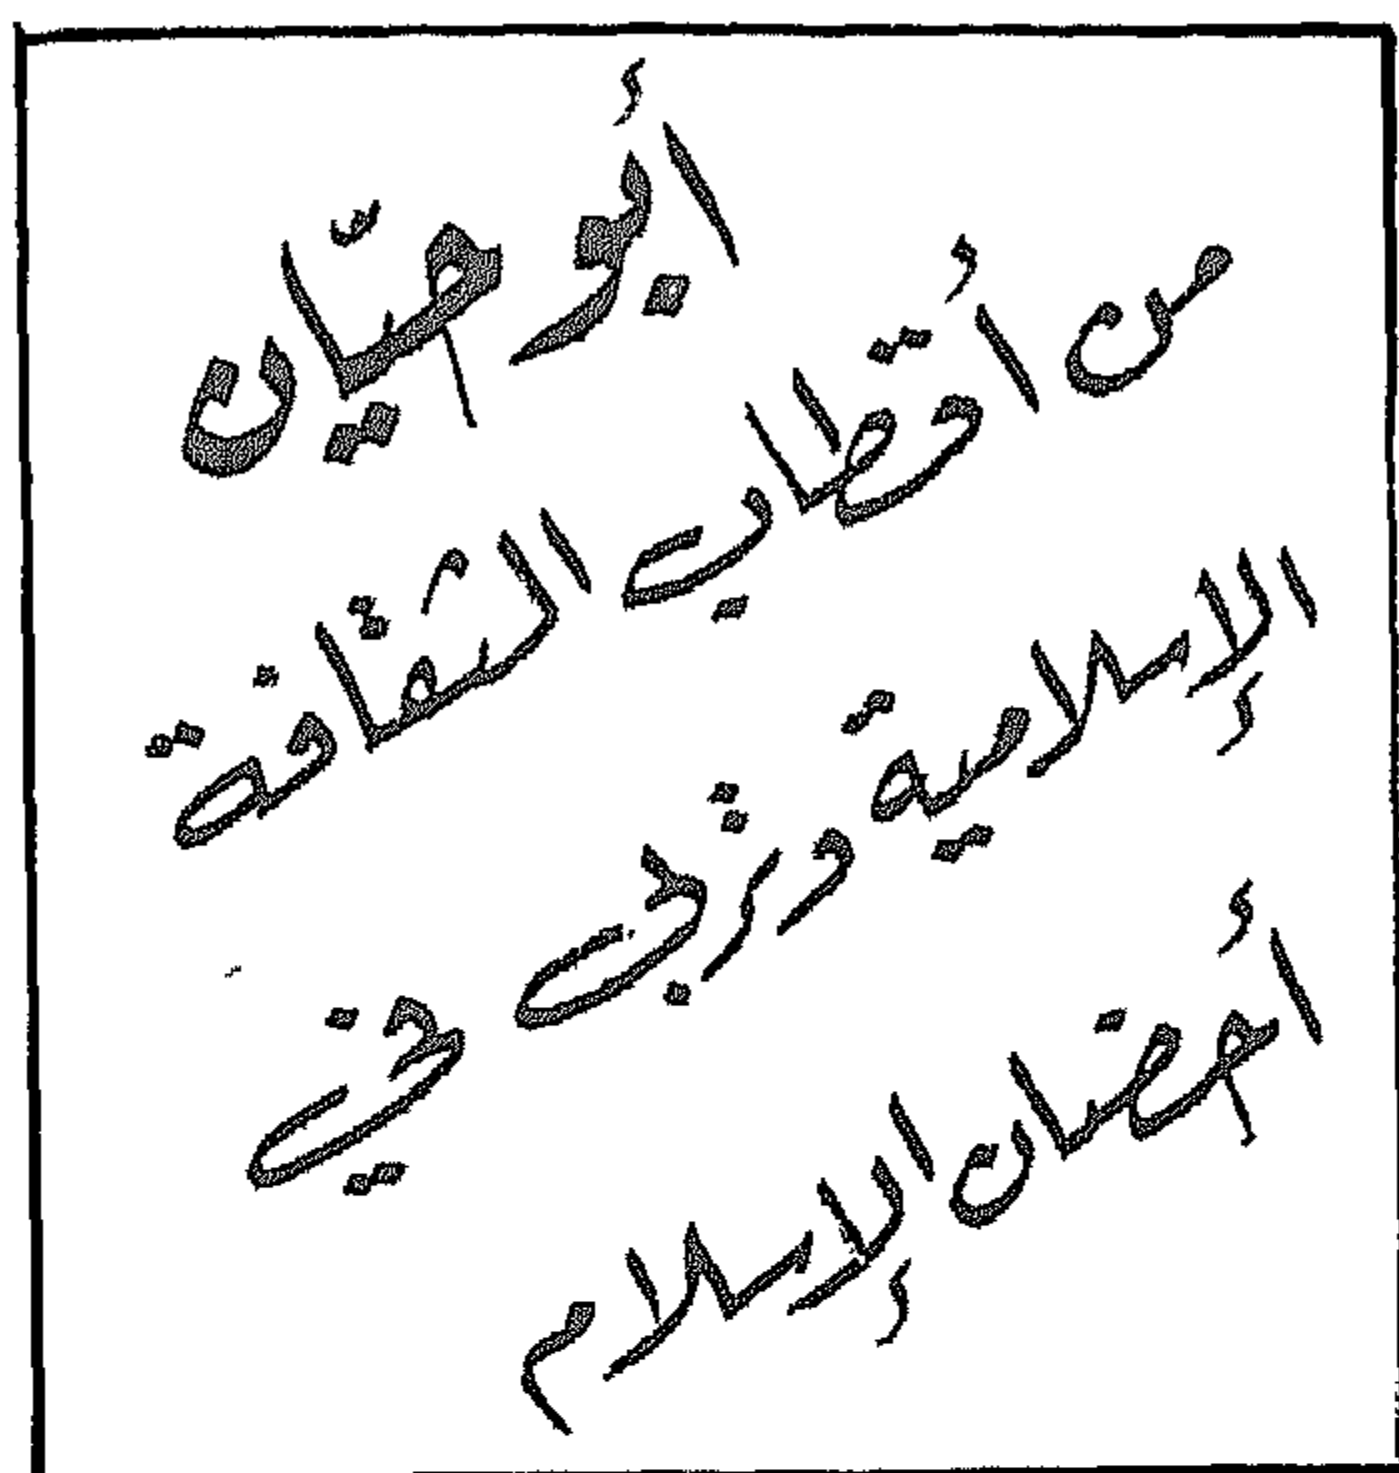 أبو حيّان
من أقطاب الثقافة
الإسلامية وتربى في
أحضان الإسلام